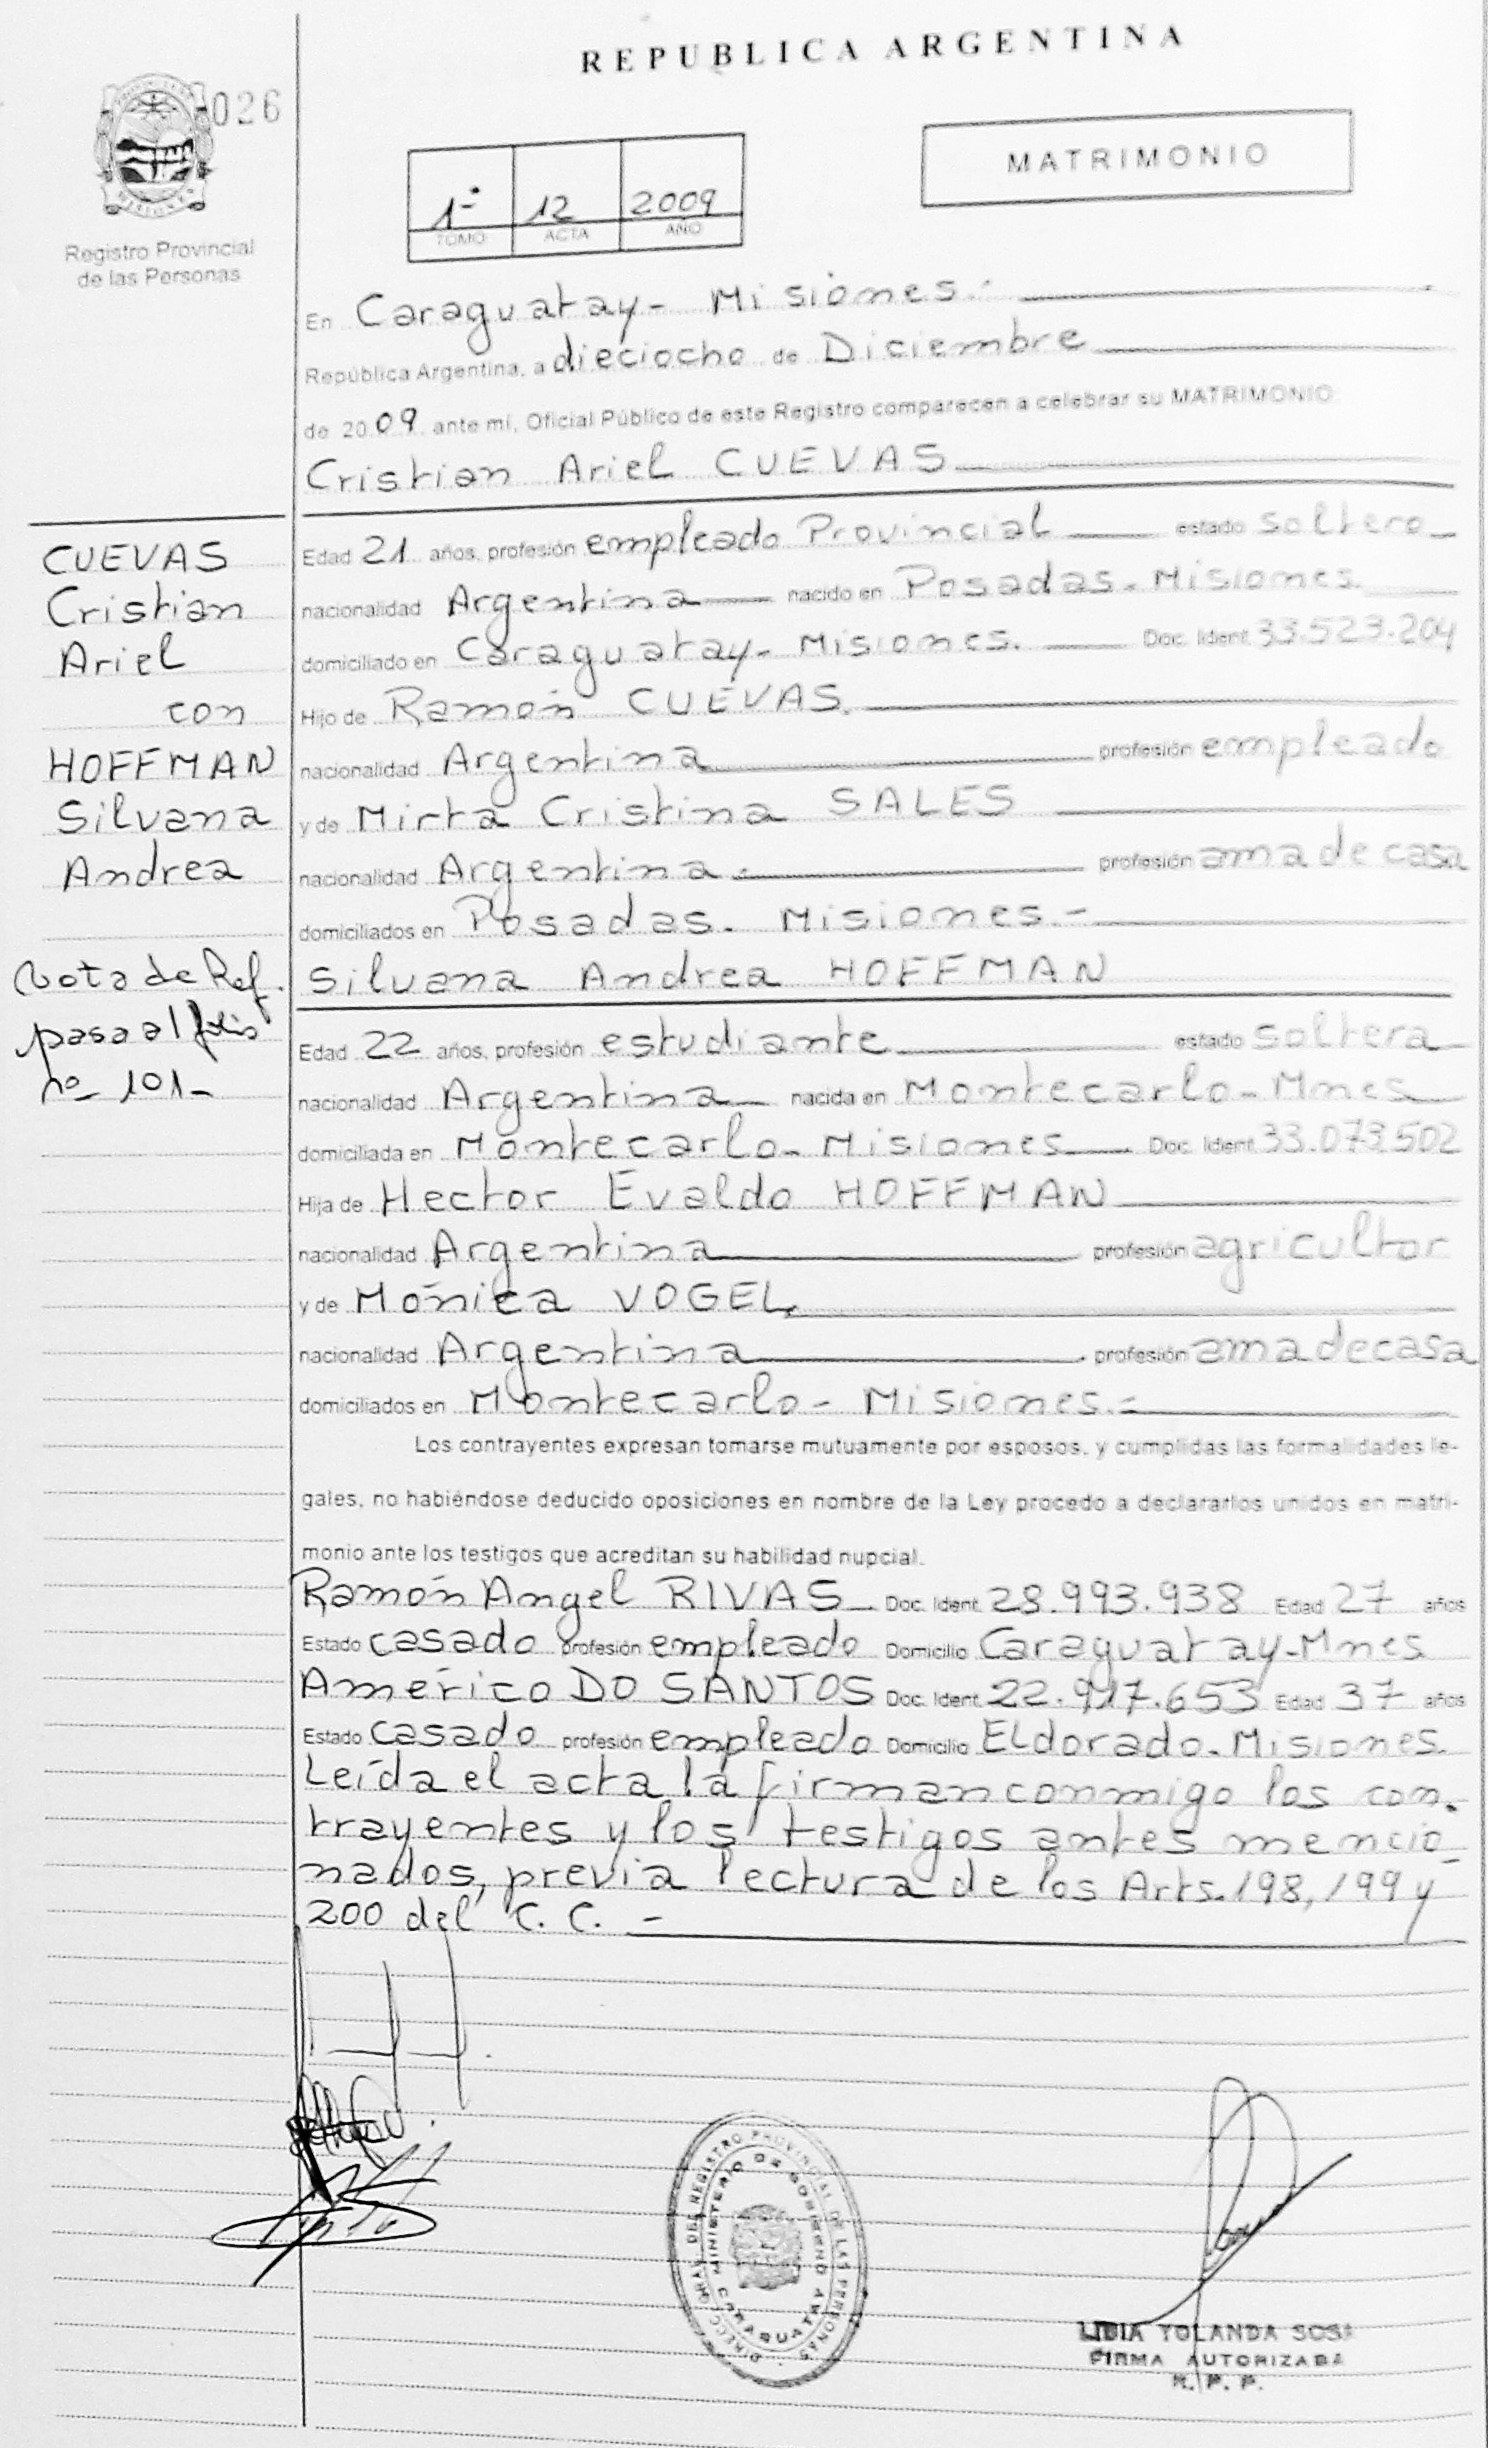 REPUBLICA ARGENTINA
026
MISIONES
Registro Provincial
de las Personas
1º 12 2009
TOMO ACTA AÑO
MATRIMONIO
En Caraguatay- Misiones.-
República Argentina, a dieciocho de Diciembre
de 2009 ante mi, Oficial Público de este Registro comparecen a celebrar su MATRIMONIO:
Cristian Ariel CUEVAS
CUEVAS
Cristian
Ariel
con
HOFFMAN
Silvana
Andrea
Nota de Ref.
pasa al folio
nº 101-
Edad 21 años, profesión empleado Provincial estado soltero
nacionalidad Argentina nacido en Posadas- Misiones.
domiciliado en Caraguatay- Misiones. Doc. Ident. 33.523.204
Hijo de Ramón CUEVAS.
nacionalidad Argentina profesión empleado
y de Mirta Cristina SALES
nacionalidad Argentina. profesión ama de casa
domiciliados en Posadas- Misiones.-
Silvana Andrea HOFFMAN
Edad 22 años, profesión estudiante estado soltera
nacionalidad Argentina nacida en Montecarlo- Mnes
domiciliada en Montecarlo- Misiones Doc. Ident. 33.073.502
Hija de Hector Evaldo HOFFMAN
nacionalidad Argentina profesión agricultor
y de Mónica VOGEL
nacionalidad Argentina profesión ama de casa
domiciliados en Montecarlo- Misiones.-
Los contrayentes expresan tomarse mutuamente por esposos, y cumplidas las formalidades le-
gales, no habiéndose deducido oposiciones en nombre de la Ley procedo a declararlos unidos en matri-
monio ante los testigos que acreditan su habilidad nupcial.
Ramón Angel RIVAS Doc. Ident. 28.993.938 Edad 27 años
Estado casado profesión empleado Domicilio Caraguatay-Mnes
Américo DO SANTOS Doc. Ident. 22.917.653 Edad 37 años
Estado casado profesión empleado Domicilio Eldorado- Misiones.
Leída el acta la firman conmigo los con-
trayentes y los testigos antes mencio-
nados, previa lectura de los Arts. 198, 199 y
200 del C. C. -
DIRECC. GRAL. DEL REGISTRO PROVINCIAL DE LAS PERSONAS
MINISTERIO DE GOBIERNO
CARAGUATAY
LIDIA YOLANDA SOSA
FIRMA AUTORIZADA
R. P. P.